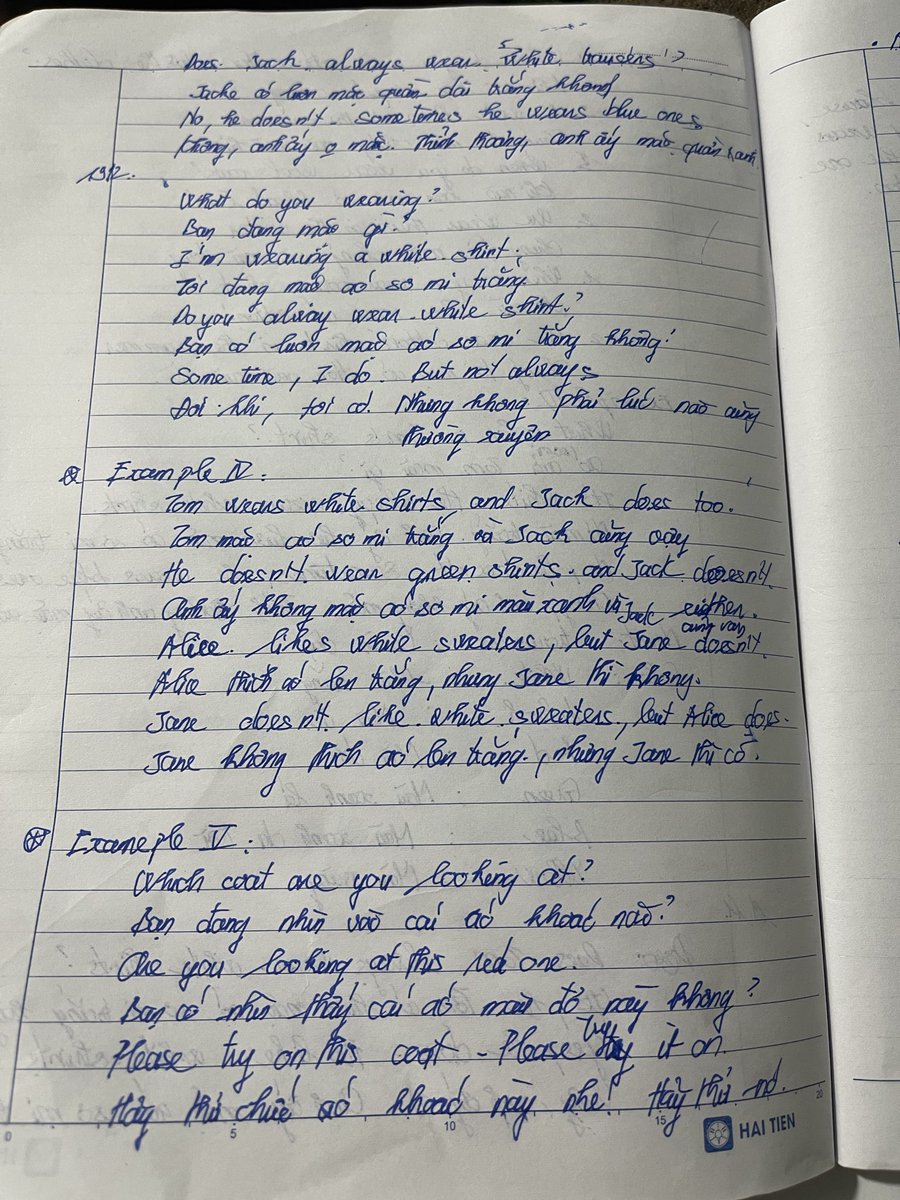 Does Jack always wear 5 white trousers?
Jacke có luôn mặc quần dài trắng không
No, he doesn't. sometimes he wears blue ones
không, anh ấy o mặc. Thỉnh thoảng, anh ấy mặc quần xanh
What do you wearing?
Bạn đang mặc gì?
I'm wearing a white shirt.
Tôi đang mặc aó sơ mi trắng
Do you alway wear white shirt?
Bạn có luôn mặc aó sơ mi trắng không?
Some time, I do. But not always
Đôi khi, tôi có. Nhưng không phải luć nào cũng
thường xuyên
Example IV:
Tom wears white shirts and Jack does too.
Tom mặc aó sơ mi trắng và Jack cũng vậy
He doesn't wear green shirts. and Jack doesn't
Anh ấy không mặc aó sơ mi màu xanh và Jack either.
cũng vậy
Alice likes white sweaters, but Jane doesn't.
Alice thích aó len trắng, nhưng Jane thì không.
Jane doesn't like white sweaters, but Alice does.
Jane không thích aó len trắng, nhưng Jane thì có.
Exameple V:
Which coat are you looking at?
Bạn đang nhìn vào caí aó khoać nào?
Are you looking at this red one.
Bạn có nhìn thấy caí aó màu đỏ này không?
Please try on this coat - Please try it on.
Hãy thử chiếc aó khoać này nhé! Hãy thử nó.
0 5 10 15 20
HAI TIEN